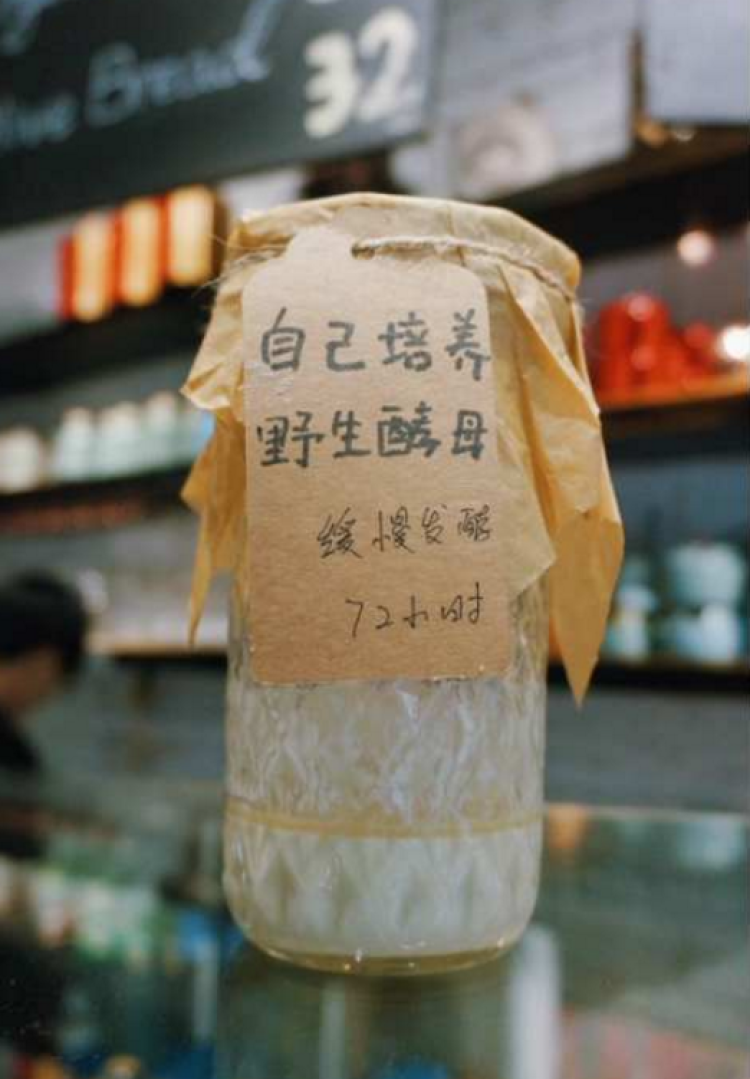 Bread
32
自己培养
野生酵母
缓慢发酵
72小时